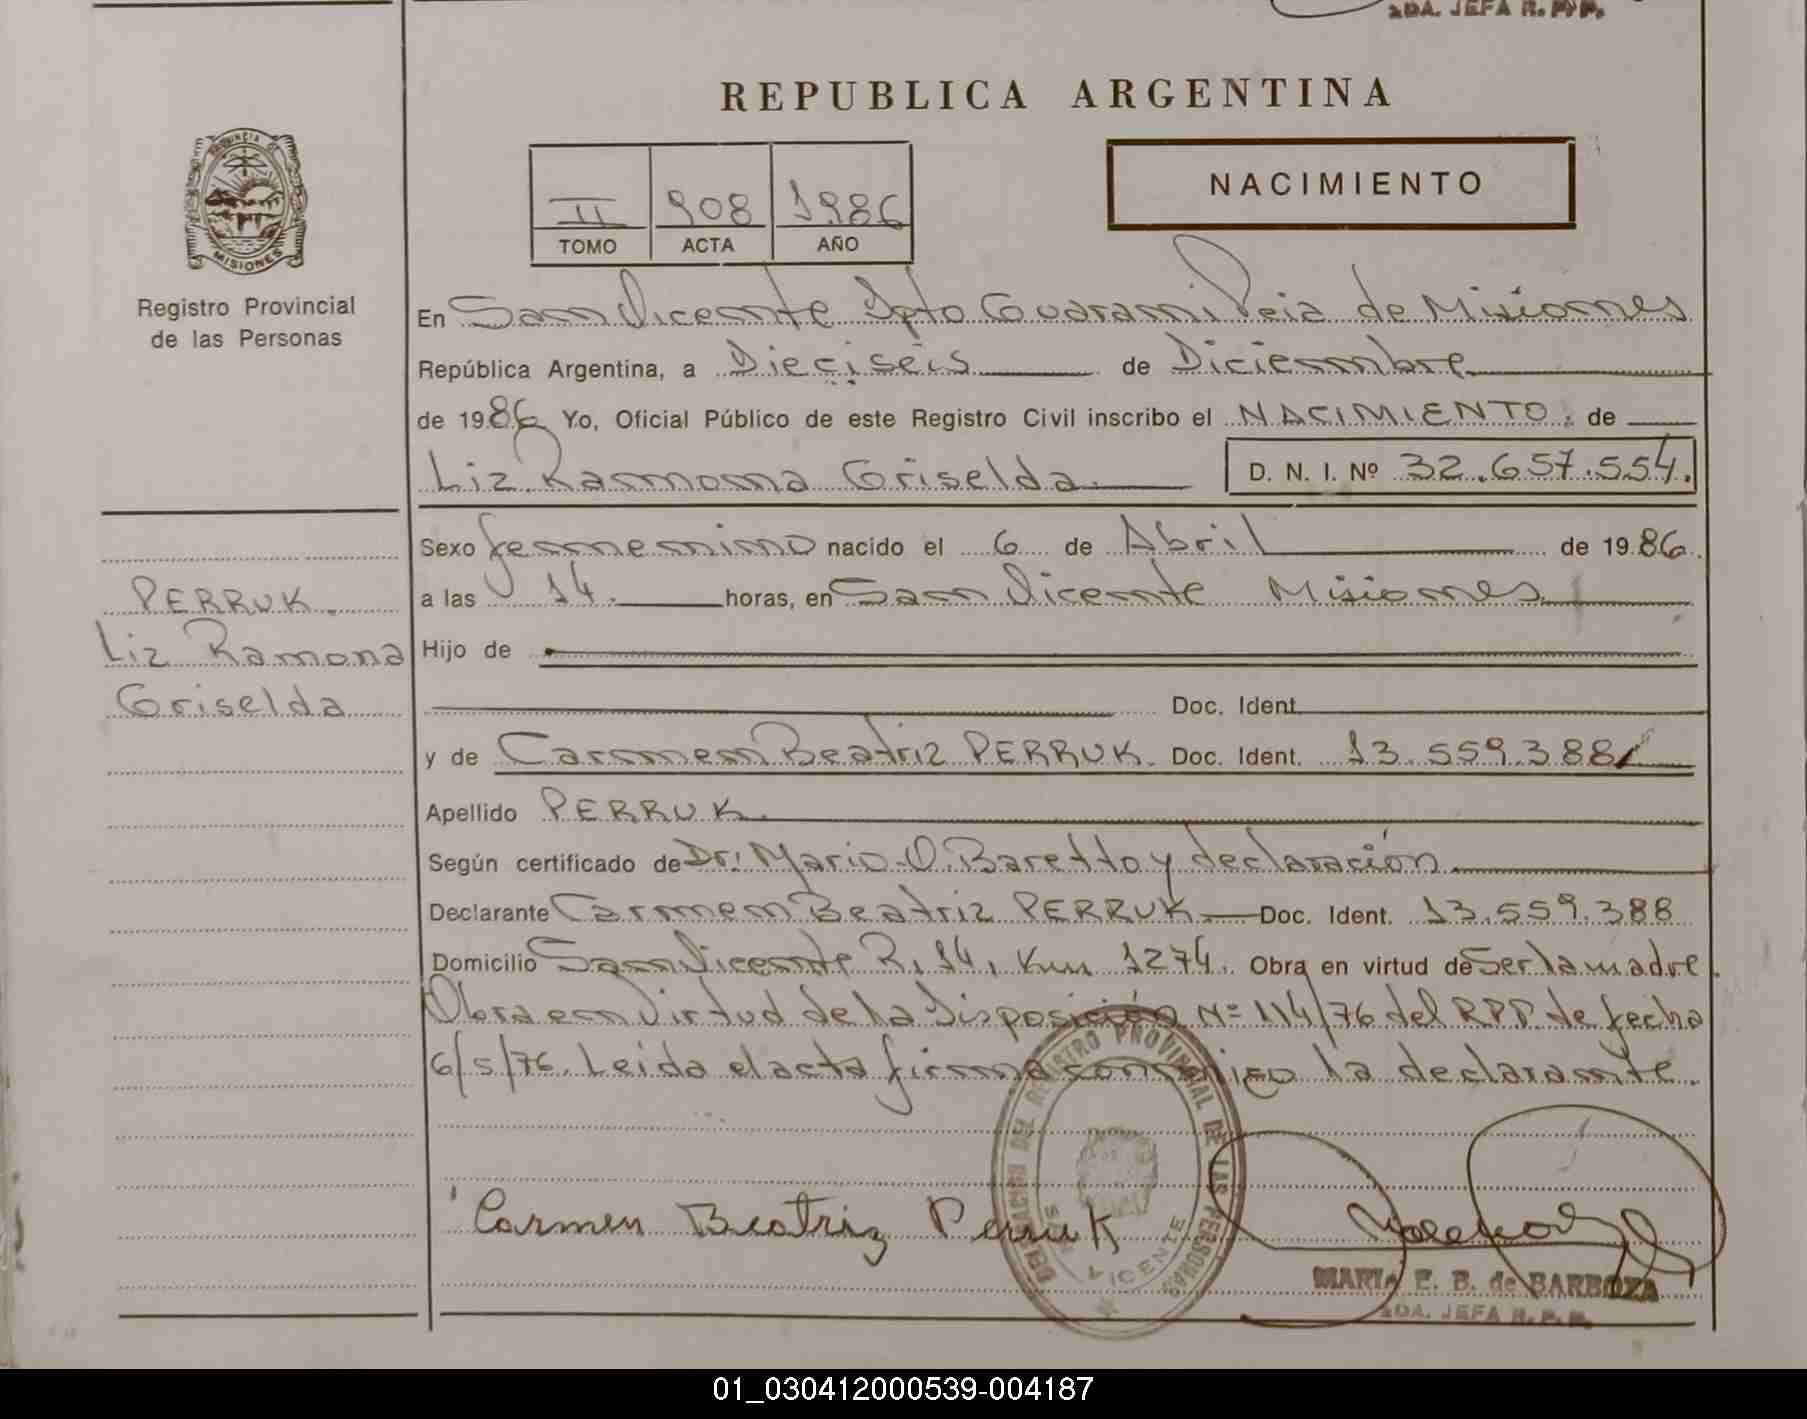 2DA. JEFA R. P. P.
REPUBLICA ARGENTINA
PROVINCIA DE
MISIONES
Registro Provincial
de las Personas
II 908 1986
TOMO ACTA AÑO
NACIMIENTO
En San Vicente Dpto Guarani Pcia de Misiones
República Argentina, a Dieciseis de Diciembre
de 1986 Yo, Oficial Público de este Registro Civil inscribo el NACIMIENTO. de
Liz Ramona Griselda. D. N. I. Nº 32.657.554.
Sexo femenino nacido el 6 de Abril de 1986.
a las 14. horas, en San Vicente Misiones
PERRUK.
Liz Ramona
Griselda
Hijo de
Doc. Ident.
y de Carmen Beatriz PERRUK. Doc. Ident. 13.559.388
Apellido PERRUK.
Según certificado de Dr: Mario O. Baretto y declaración.
Declarante Carmen Beatriz PERRUK Doc. Ident. 13.559.388
Domicilio San Vicente R. 14, Km 1274. Obra en virtud de Ser la madre.
Obra en Virtud de la Disposición Nº 114/76 del RPP. de fecha
6/5/76. Leida el acta firma conmigo la declarante.
DELEGACION DEL REGISTRO PROVINCIAL DE LAS PERSONAS
SAN VICENTE
Carmen Beatriz Perruk
MARIA E. B. de BARBOZA
2DA. JEFA R. P. P.
01_030412000539-004187